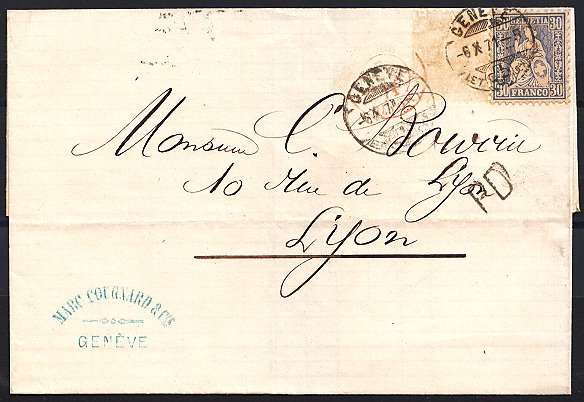 GENÈVE
-6 X 71
30 HELVETIA 30
30 FRANCO 30
GENÈVE
-6 X 71
Monsieur C. Bouvrin
10 Rue de Lyon
PD
Lyon
MARC COUGNARD & CIE
GENÈVE